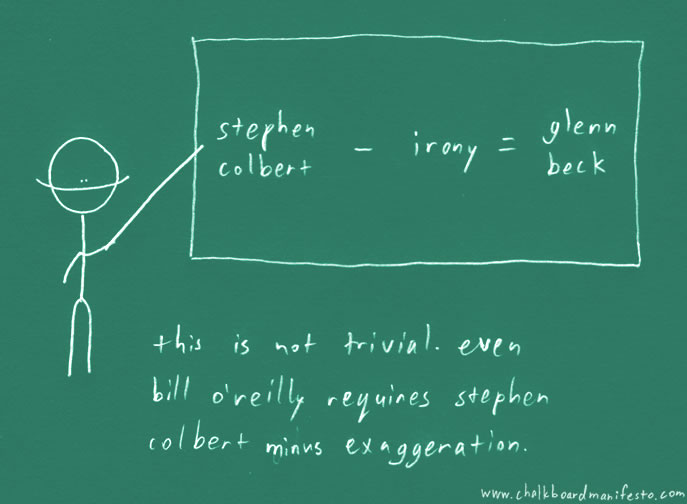 stephen colbert - irony = glenn beck
this is not trivial. even
bill o'reilly requires stephen
colbert minus exaggeration.
www.chalkboardmanifesto.com